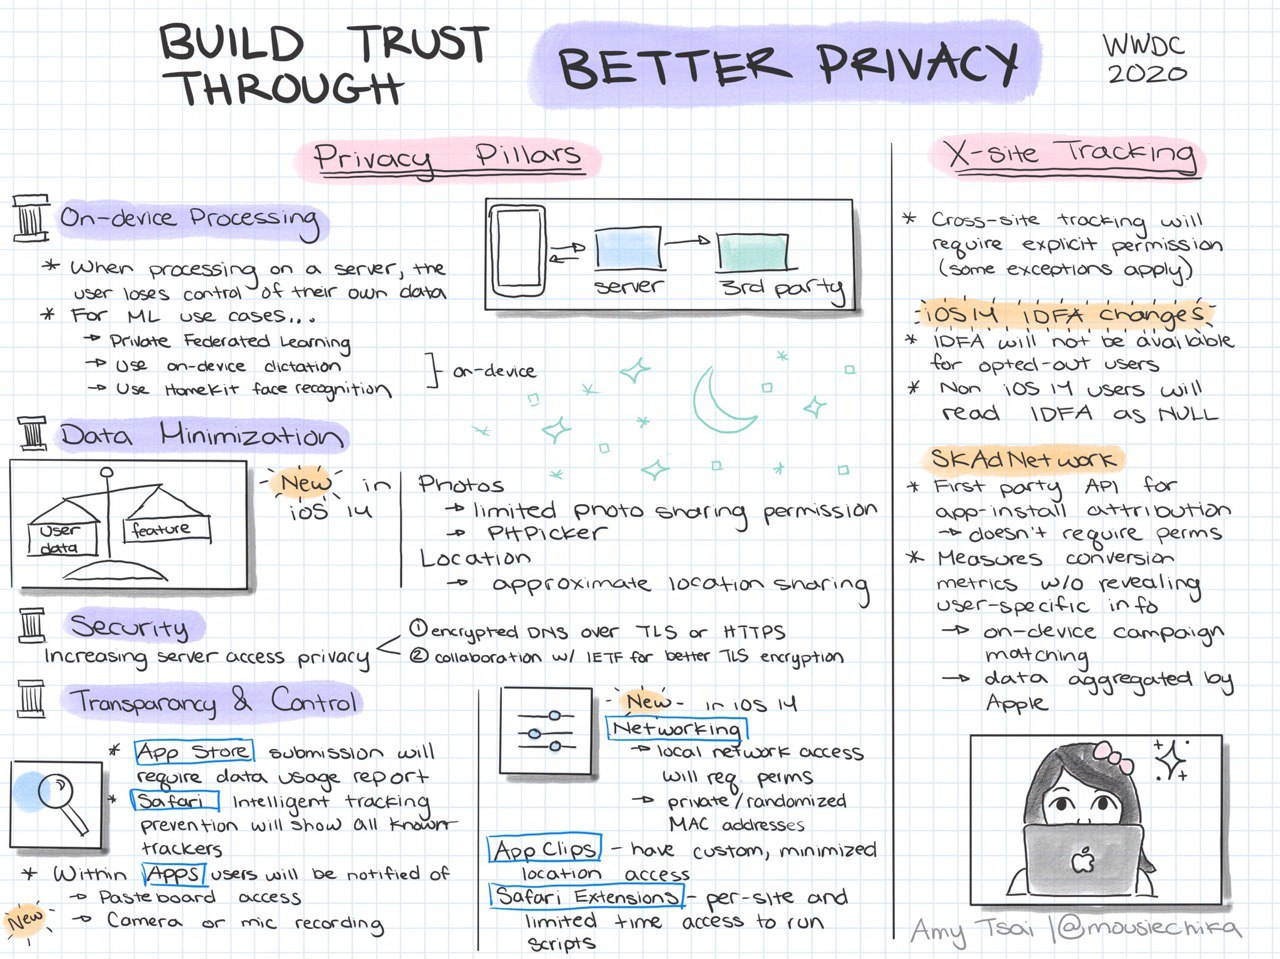 BUILD TRUST
THROUGH
BETTER PRIVACY
WWDC
2020
Privacy Pillars
On-device Processing
* When processing on a server, the
user loses control of their own data
* For ML use cases...
→ Private Federated Learning
→ Use on-device dictation
→ Use HomeKit face recognition
on-device
server
3rd party
Data Minimization
user
data
feature
New in
iOS 14
Photos
→ limited photo sharing permission
→ PHPicker
Location
→ approximate location sharing
Security
Increasing server access privacy
① encrypted DNS over TLS or HTTPS
② collaboration w/ IETF for better TLS encryption
Transparancy & Control
* App Store submission will
require data usage report
* Safari Intelligent tracking
prevention will show all known
trackers
* Within Apps users will be notified of
→ Pasteboard access
New → Camera or mic recording
New - in iOS 14
Networking
→ local network access
will req perms
→ private/randomized
MAC addresses
App Clips - have custom, minimized
location access
Safari Extensions - per-site and
limited time access to run
scripts
X-site Tracking
* Cross-site tracking will
require explicit permission
(some exceptions apply)
iOS 14 IDFA changes
* IDFA will not be available
for opted-out users
* Non iOS 14 users will
read IDFA as NULL
SKAdNetwork
* First party API for
app-install attribution
→ doesn't require perms
* Measures conversion
metrics w/o revealing
user-specific info
→ on-device campaign
matching
→ data aggregated by
Apple
Amy Tsai | @mousiechika